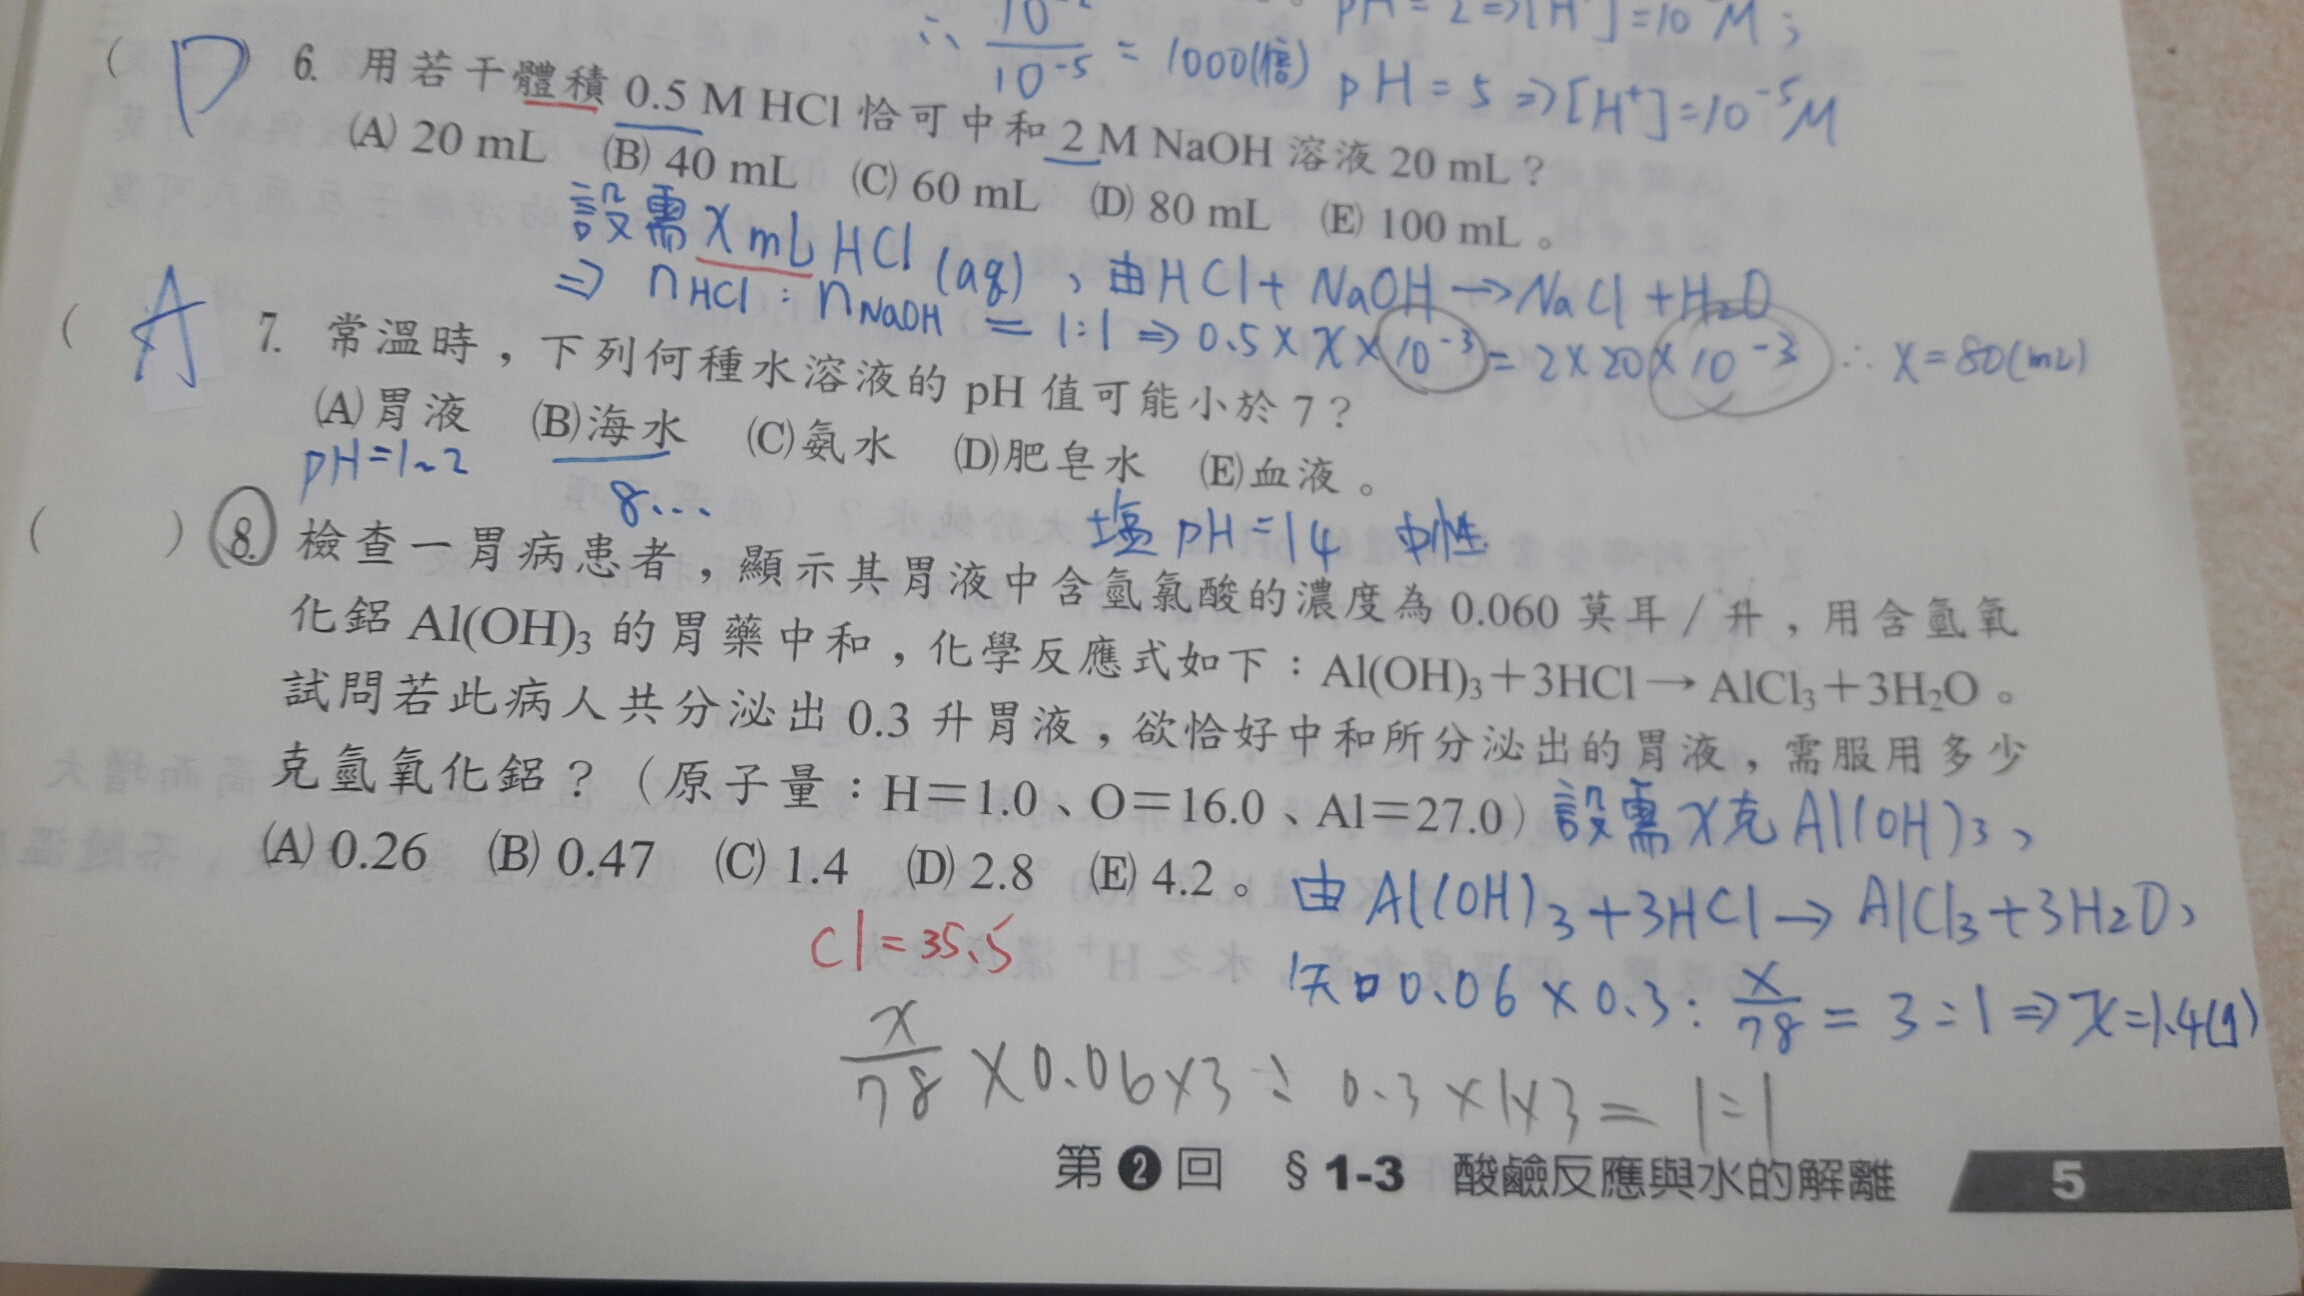 ∴ 10 / 10⁻⁵ = 1000(倍) pH = 2 ⇒ [H⁺] = 10⁻²M;
pH = 5 ⇒ [H⁺] = 10⁻⁵M
( D 6. 用若干體積 0.5 M HCl 恰可中和 2 M NaOH 溶液 20 mL?
(A) 20 mL (B) 40 mL (C) 60 mL (D) 80 mL (E) 100 mL。
設需 x mL HCl(aq),由 HCl + NaOH → NaCl + H₂O
⇒ nHCl : nNaOH = 1:1 ⇒ 0.5 × x × 10⁻³ = 2 × 20 × 10⁻³ ∴ x = 80(mL)
( A 7. 常溫時,下列何種水溶液的 pH 值可能小於 7?
(A)胃液 (B)海水 (C)氨水 (D)肥皂水 (E)血液。
pH=1~2 8... 塩 pH=14 中性
( ) 8. 檢查一胃病患者,顯示其胃液中含氫氯酸的濃度為 0.060 莫耳/升,用含氫氧
化鋁 Al(OH)₃ 的胃藥中和,化學反應式如下:Al(OH)₃+3HCl→AlCl₃+3H₂O。
試問若此病人共分泌出 0.3 升胃液,欲恰好中和所分泌出的胃液,需服用多少
克氫氧化鋁?(原子量:H=1.0、O=16.0、Al=27.0)設需 x 克 Al(OH)₃,
(A) 0.26 (B) 0.47 (C) 1.4 (D) 2.8 (E) 4.2。由 Al(OH)₃ + 3HCl → AlCl₃ + 3H₂O,
Cl = 35.5
知 0.06 × 0.3 : x/78 = 3 : 1 ⇒ x = 1.4(g)
x/78 × 0.06 × 3 : 0.3 × 1 × 3 = 1 : 1
第❷回 §1-3 酸鹼反應與水的解離 5